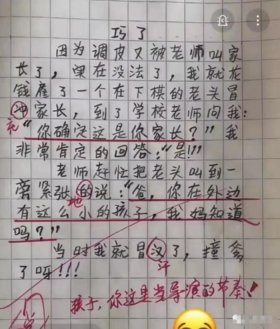 巧了
因为调皮又被老师叫家
长了，实在没法了，我就花
钱雇了一个在下棋的老头冒
冲家长，到了学校老师问我：
充
“你确定这是你家长？”我
非常肯定的回答：“是!!!”
老师赶忙把老头叫到一
离紧张的说：“爸，你在外边
地
有这么小的孩子，我妈知道
吗？”
当时我就冒汉了，撞爹
汗
了呀!!!
孩子，你这是当导演的节奏！